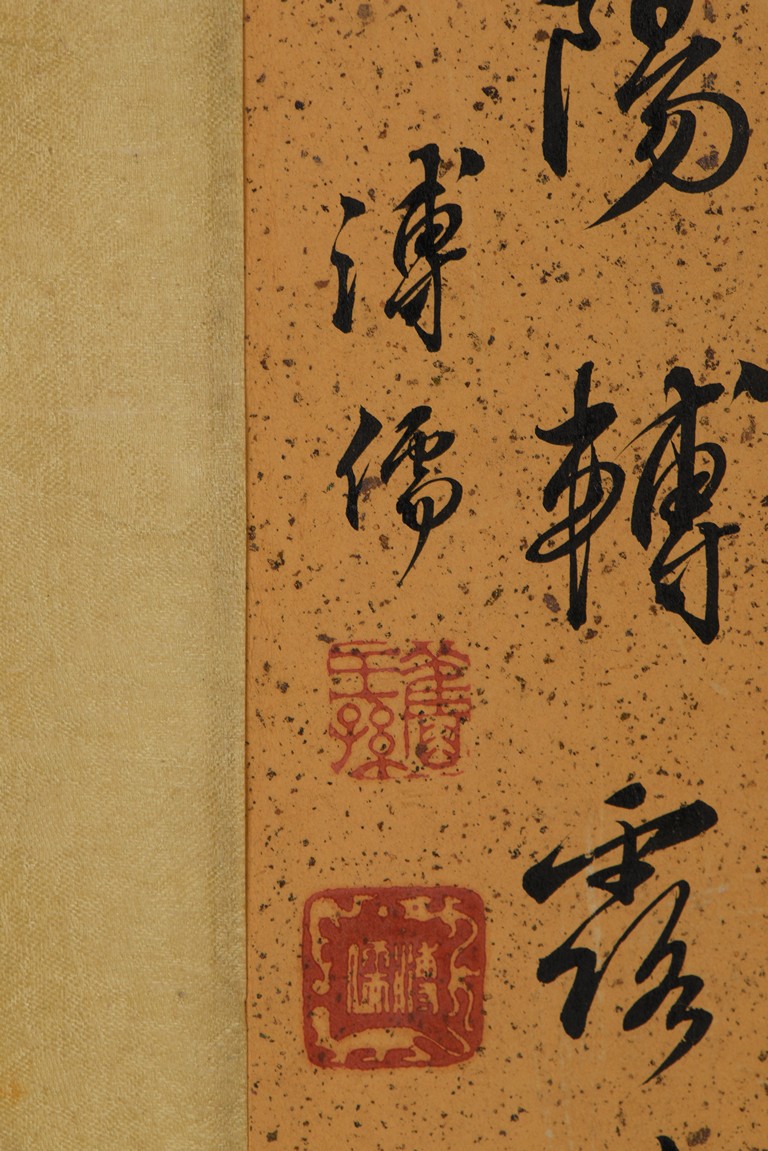 陽轉露
溥儒
舊王孫
溥儒